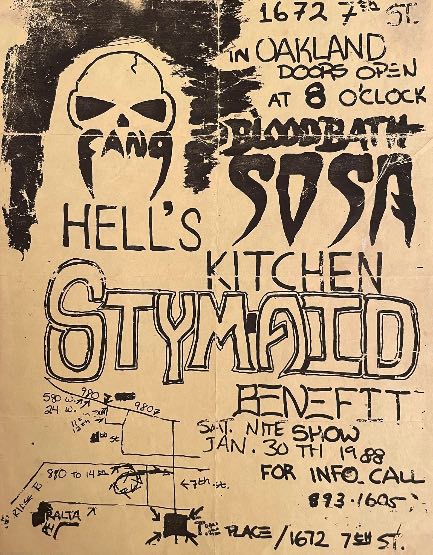 1672 7TH ST.
IN OAKLAND
DOORS OPEN
AT 8 O'CLOCK
FANG
BLOODBATH
SOSA
HELL'S
KITCHEN
STYMAID
BENEFIT
SAT. NITE SHOW
JAN. 30TH 1988
FOR INFO CALL
893-1605
580 W.
980
24 W.
980
880 TO 14th
7th st.
THE PLACE / 1672 7th ST.